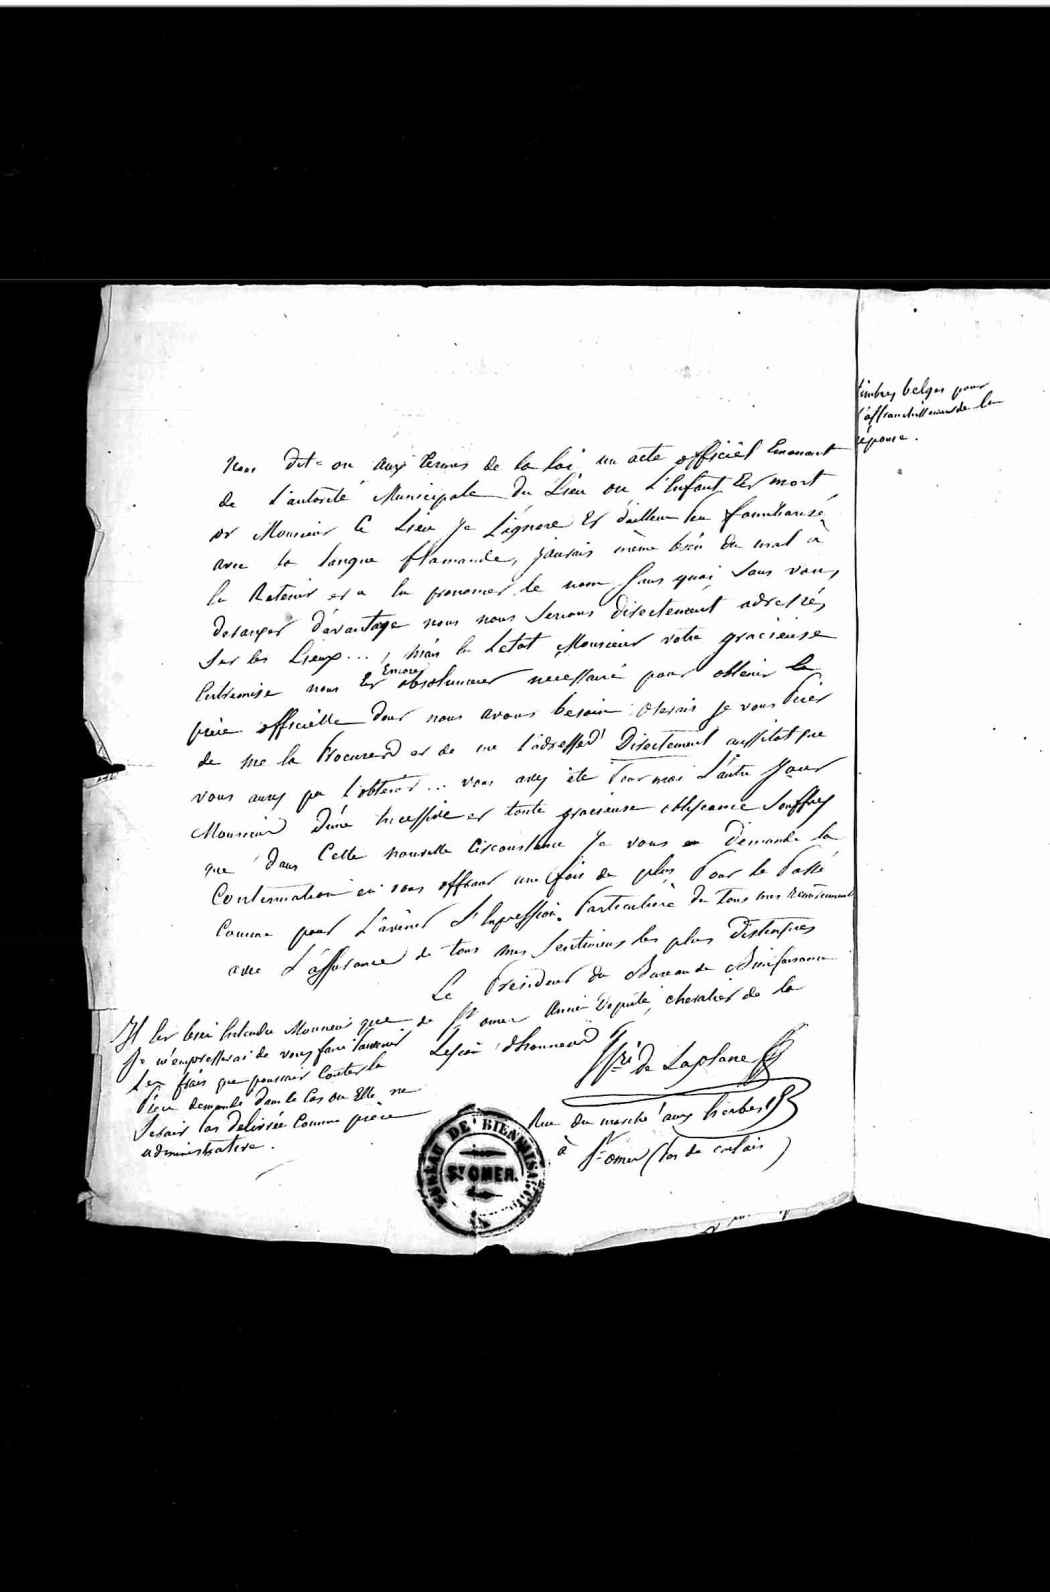 timbres belges pour
l'affranchissement de la
réponse.
nous dit-on aux termes de la loi un acte officiel Emanant
de l'autorité Municipale du Lieu ou L'Enfant Est mort
or Monsieur Ce Lieu Je L'ignore Et d'ailleurs peu familiarisé
avec la langue flamande, J'aurais même bien du mal à
la Retenir et a la prononcer le nom Sans quoi Sans vous
deranger d'avantage nous nous Serions directement adressés
Sur les Lieux ..., mais en L'etat Monsieur votre gracieuse
Entremise nous Est Encore absolument necessaire pour obtenir la
pièce officielle dont nous avons besoin Oserais Je vous Prier
de me la Procurer et de me l'adresser Directement aussitot que
vous aurez pu l'obtenir ... vous avez été Pour moi L'autre Jour
Monsieur d'une Excessive et toute gracieuse obligeance Souffrez
que dans Cette nouvelle Circonstance Je vous en Demande la
Continuation en vous offrant une fois de plus Pour le Passé
Comme pour L'avenir L'Expression Particulière de tous mes remerciements
avec L'assurance de tous mes Sentimens les plus Distingués
Le Président du Bureau de Bienfaisance
de St omer Ancien Deputé, chevalier de la
Legion d'honneur
Hri de Laplane
Rue du marché aux herbes
à St omer (Pas de calais)
Il Est bien Entendu Monsieur que
Je m'empresserai de vous faire parvenir
Les frais que pourrait Couter la
Pièce demandée dans le Cas ou Elle ne
Serait pas delivrée Comme pièce
administrative.
BUREAU DE BIENFAISANCE
ST OMER.